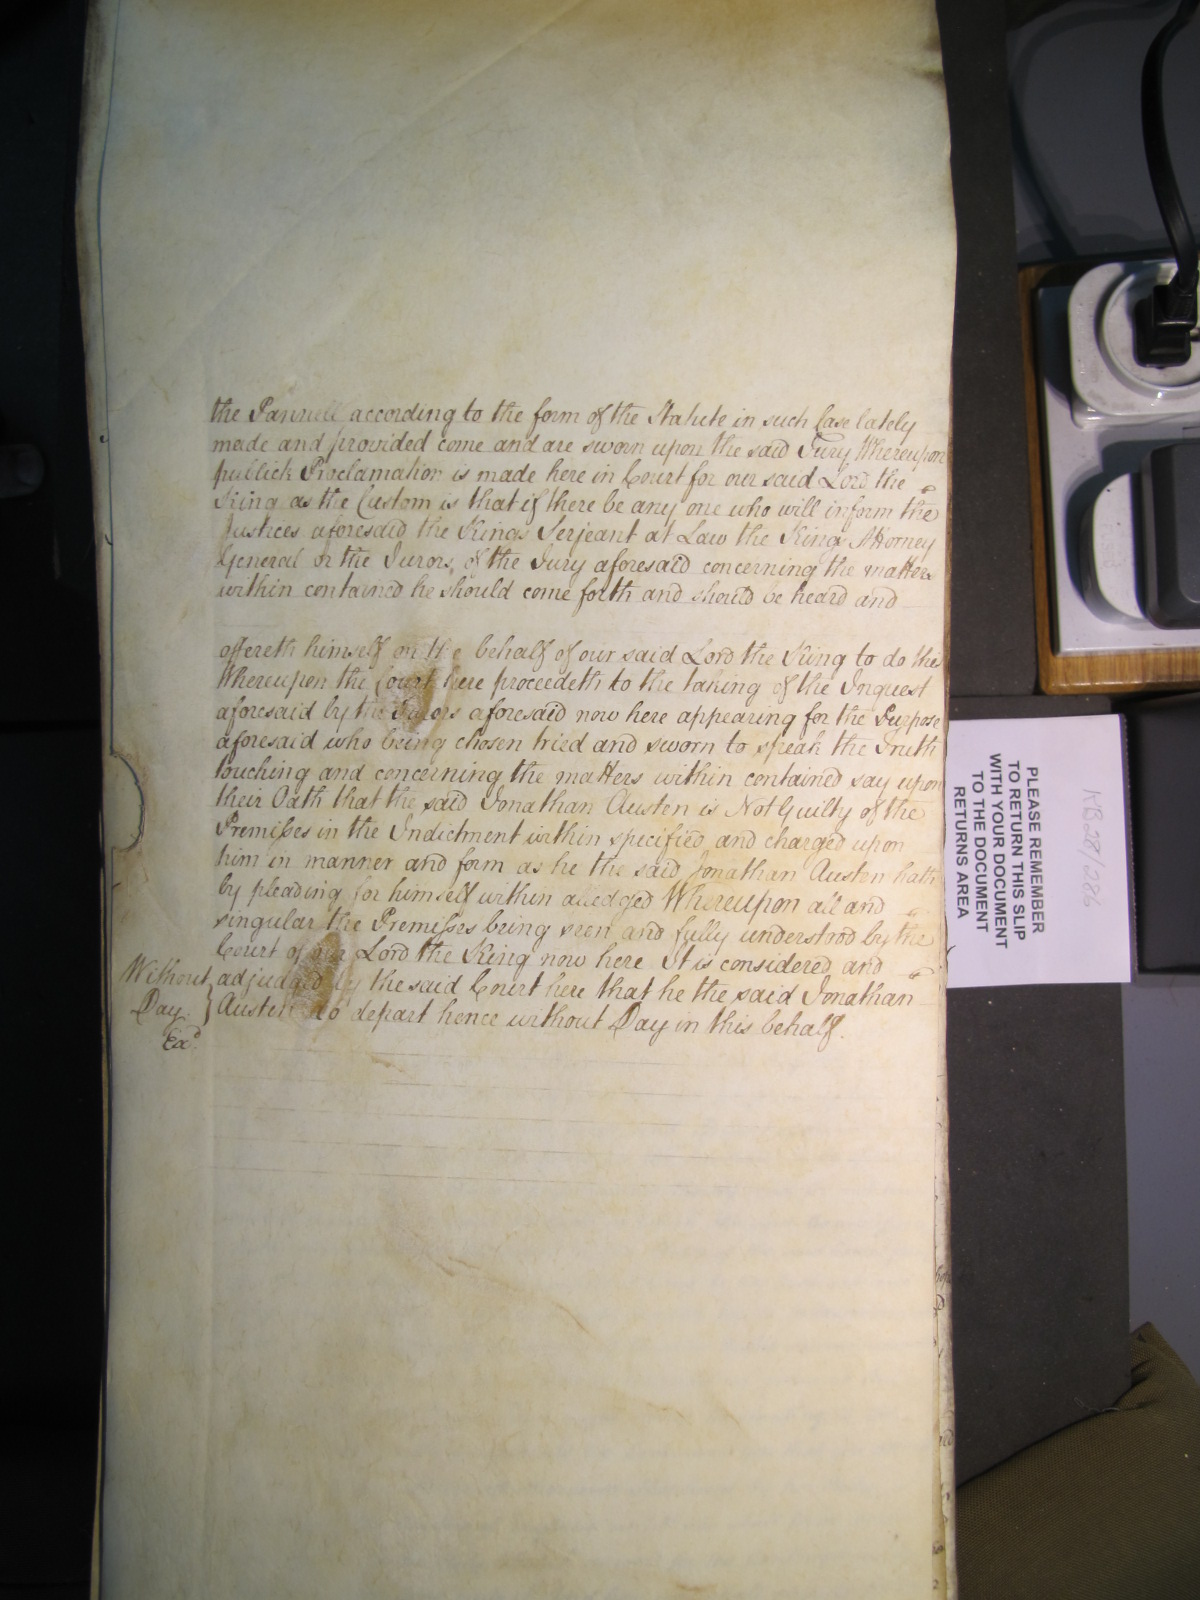 the Pannell according to the form of the Statute in such Case lately
made and provided come and are sworn upon the said Jury Whereupon
publick Proclamation is made here in Court for our said Lord the
King as the Custom is that if there be any one who will inform the
Justices aforesaid the Kings Serjeant at Law the Kings Attorney
General or the Jurors of the Jury aforesaid concerning the matters
within contained he should come forth and should be heard and
offereth himself on the behalf of our said Lord the King to do this
Whereupon the Court here proceedeth to the taking of the Inquest
aforesaid by the Jurors aforesaid now here appearing for the Purpose
aforesaid who being chosen tried and sworn to speak the Truth
touching and concerning the matters within contained say upon
their Oath that the said Jonathan Austen is Not Guilty of the
Premisses in the Indictment within specified and charged upon
him in manner and form as he the said Jonathan Austen hath
by pleading for himself within alledged Whereupon all and
singular the Premisses being seen and fully understood by the
Court of our Lord the King now here It is considered and
Without adjudged by the said Court here that he the said Jonathan
Day } Austen do depart hence without Day in this behalf.
Exd
PLEASE REMEMBER
TO RETURN THIS SLIP
WITH YOUR DOCUMENT
TO THE DOCUMENT
RETURNS AREA
KB28/286